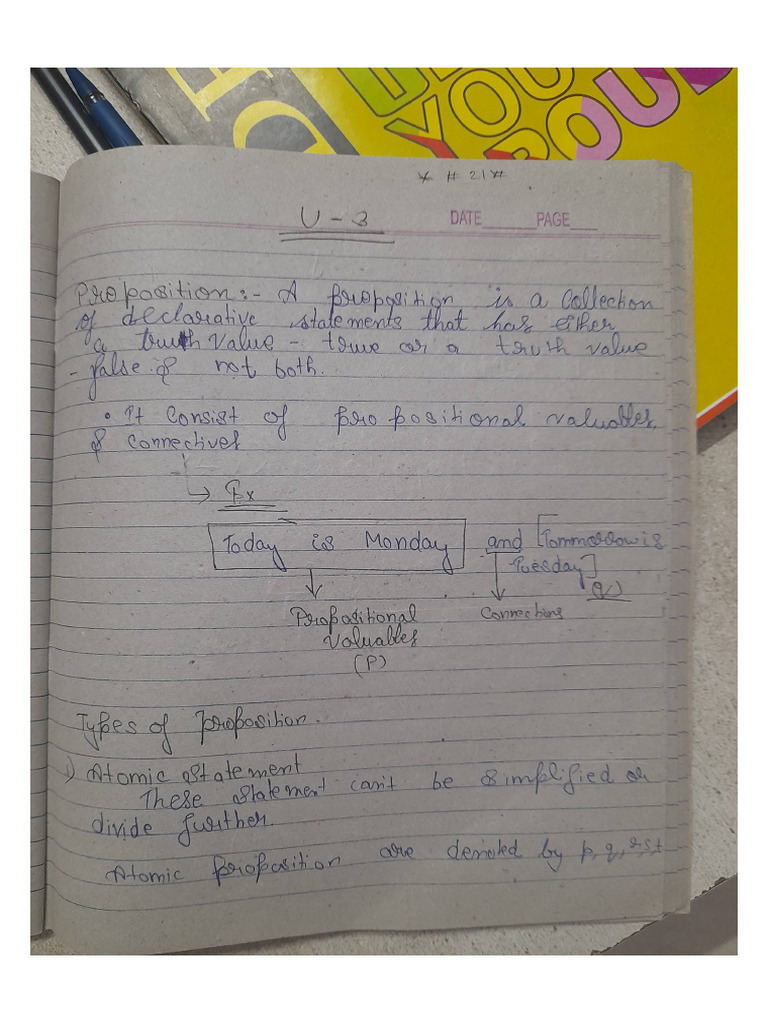 YOU
* # 21 #
U - 3
DATE PAGE
Proposition:- A proposition is a Collection
of declarative statements that has either
a truth value - true or a truth value
- false & not both.
• It Consist of propositional valuables
& connectives
↳ Ex
Today is Monday and [Tommorrow is
Tuesday]
(q)
Propositional
Valuables
(P)
Types of proposition.
1) Atomic Statement
These statement can't be simplified or
divide further.
Atomic proposition are denoted by p, q, r, s, t